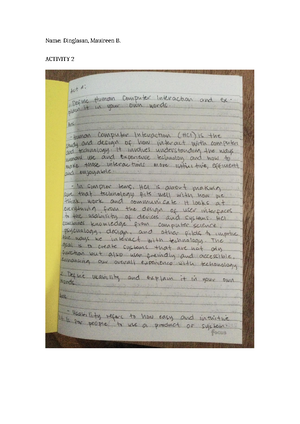 Name: Dioglasan, Maureen B.
ACTIVITY 2
Define Human Computer Interaction and ex-
plain it in your own words.
Human Computer Interaction (HCI) is the
study and design of how interact with computers
and technology. It involves understanding the ways
use and experience technology and how to
make these interactions more intuitive, efficient
and enjoyable.
In simpler terms, HCI is about making
sure that technology fits well with how we
think, work and communicate. It looks at
everything from the design of user interfaces
to the usability of devices and systems. HCI
combines knowledge from computer science,
psychology, design, and other fields to improve
the ways we interact with technology. The
goal is to create systems that are not only
function but also user friendly and accessible,
our overall experience with technology.
Define usability and explain it in your own
words.
Usability refers to how easy and intuitive
it is for people to use a product or system.